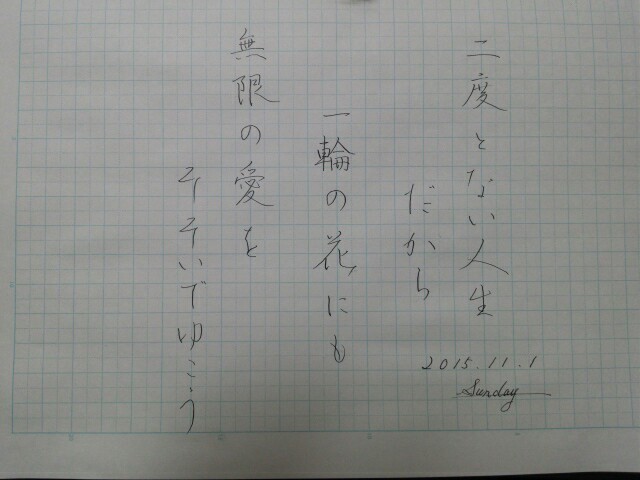 二度とない人生
だから
一輪の花にも
無限の愛を
そそいでゆこう
2015.11.1
Sunday